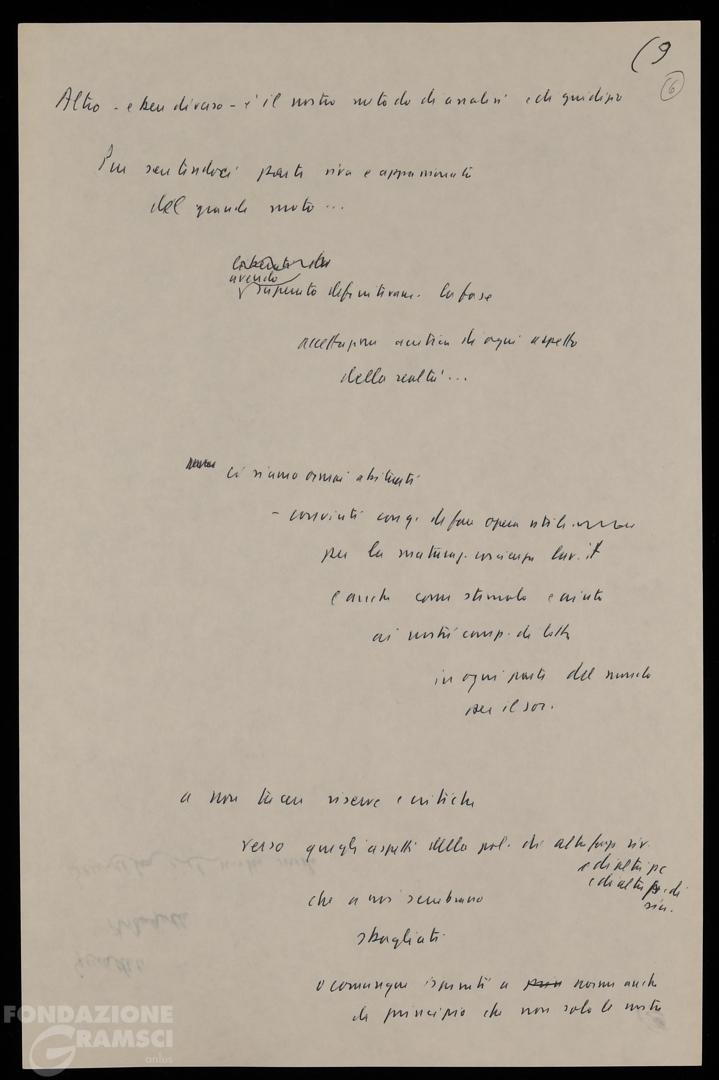 (9
6
Altro - e ben diverso - è il nostro metodo di analisi e di giudizio
Pur sentendoci parte viva e appassionata
del grande moto...
avendo
superato definitivam. la fase
accettazione acritica di ogni aspetto
della realtà...
ci siamo ormai abituati
- convinti con q. di fare opera utile
per la maturaz. coscienza lav. it
e anche come stimolo e aiuto
ai nostri comp. di lotta
in ogni parte del mondo
per il soc.
a non tacere riserve e critiche
verso quegli aspetti della pol. di altre forze riv.
e di altri pc
e di altri p. di
sin.
che a noi sembrano
sbagliati
o comunque ispirati a norme anche
di principio che non solo le nostre
FONDAZIONE
GRAMSCI
onlus